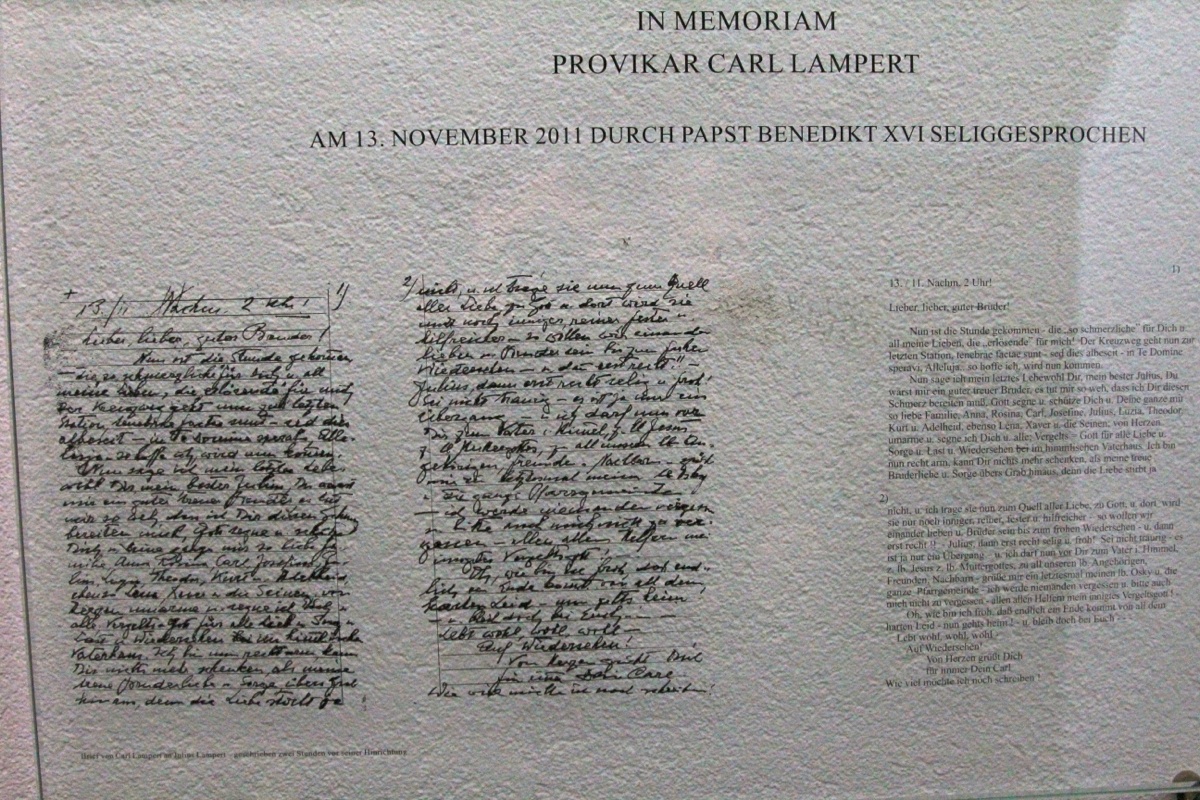 IN MEMORIAM
PROVIKAR CARL LAMPERT
AM 13. NOVEMBER 2011 DURCH PAPST BENEDIKT XVI SELIGGESPROCHEN
1)
13. / 11. Nachm. 2 Uhr!
Lieber, lieber, guter Bruder!
Nun ist die Stunde gekommen
– die so schmerzliche für Dich u. all
meine Lieben, die „erlösende" für mich
Der Kreuzweg geht nun zur letzten
Station, tenebrae factae sunt – sed dies
albescit – in Te Domine speravi, Alle-
luja, so hoffe ich, wird nun kommen.
Nun sage ich mein letztes Lebe-
wohl Dir, mein bester Julius, Du warst
mir ein guter treuer Bruder, es tut
mir so weh, dass ich Dir diesen Schmerz
bereiten muß. Gott segne u. schütze
Dich u. Deine ganze mir so liebe Fa-
milie, Anna, Rosina, Carl, Josefine, Ju-
lius, Luzia, Theodor, Kurt u. Adelheid,
ebenso Lena, Xaver u. die Seinen, von
Herzen umarme u. segne ich Dich u.
alle, Vergelts – Gott für alle Liebe u. Sorge u.
Last u. Wiedersehen bei im himmlischen
Vaterhaus. Ich bin nun recht arm, kann
Dir nichts mehr schenken, als meine
treue Bruderliebe u. Sorge übers Grab
hinaus, denn die Liebe stirbt ja
2) nicht, u. ich trage sie nun zum Quell
aller Liebe, zu Gott u. dort wird sie
nur noch inniger, reiner, fester u.
hilfreicher – so wollen wir einander
lieben u. Brüder sein bis zum frohen
Wiedersehen – u. dann erst recht!!
Julius, dann erst recht selig u. froh!
Sei nicht traurig – es ist ja nur ein
Übergang – u. ich darf nun vor
Dir zum Vater i. Himmel, z. lb Jesus
z. lb. Muttergottes, zu all unseren lb. An-
gehörigen, Freunden, Nachbarn – grüße
mir ein letztesmal meinen lb Osky
u. die ganze Pfarrgemeinde
– ich werde niemanden vergessen
u. bitte auch mich nicht zu ver-
gessen – allen allen Helfern mein
innigstes Vergeltsgott!
Oh, wie bin ich froh, daß end-
lich ein Ende kommt von all dem
harten Leid – nun gehts heim
u. bleib doch bei Euch –
Lebt wohl, wohl, wohl –
Auf Wiedersehen!
Von Herzen grüßt Dich
für immer Dein Carl
Wie viel möchte ich noch schreiben!
Brief von Carl Lampert an Julius Lampert - geschrieben zwei Stunden vor seiner Hinrichtung
1)
13. / 11. Nachm. 2 Uhr!
Lieber, lieber, guter Bruder!
Nun ist die Stunde gekommen - die „so schmerzliche" für Dich u.
all meine Lieben, die „erlösende" für mich! Der Kreuzweg geht nun zur
letzten Station, tenebrae factae sunt - sed dies albescit - in Te Domine
speravi, Alleluja, so hoffe ich, wird nun kommen.
Nun sage ich mein letztes Lebewohl Dir, mein bester Julius, Du
warst mir ein guter treuer Bruder, es tut mir so weh, dass ich Dir diesen
Schmerz bereiten muß. Gott segne u. schütze Dich u. Deine ganze mir
so liebe Familie, Anna, Rosina, Carl, Josefine, Julius, Luzia, Theodor,
Kurt u. Adelheid, ebenso Lena, Xaver u. die Seinen, von Herzen,
umarme u. segne ich Dich u. alle, Vergelts – Gott für alle Liebe u.
Sorge u. Last u. Wiedersehen bei im himmlischen Vaterhaus. Ich bin
nun recht arm, kann Dir nichts mehr schenken, als meine treue
Bruderliebe u. Sorge übers Grab hinaus, denn die Liebe stirbt ja
2)
nicht, u. ich trage sie nun zum Quell aller Liebe, zu Gott, u. dort wird
sie nur noch inniger, reiner, fester u. hilfreicher - so wollen wir
einander lieben u. Brüder sein bis zum frohen Wiedersehen - u. dann
erst recht!! - Julius, dann erst recht selig u. froh! Sei nicht traurig - es
ist ja nur ein Übergang - u. ich darf nun vor Dir zum Vater i. Himmel,
z. lb. Jesus z. lb. Muttergottes, zu all unseren lb. Angehörigen,
Freunden, Nachbarn - grüße mir ein letztesmal meinen lb. Osky u. die
ganze Pfarrgemeinde - ich werde niemanden vergessen u. bitte auch
mich nicht zu vergessen - allen allen Helfern mein innigstes Vergeltsgott!
Oh, wie bin ich froh, daß endlich ein Ende kommt von all dem
harten Leid - nun gehts heim! - u. bleib doch bei Euch - -
Lebt wohl, wohl, wohl,-
Auf Wiedersehen!
Von Herzen grüßt Dich
für immer Dein Carl.
Wie viel möchte ich noch schreiben !